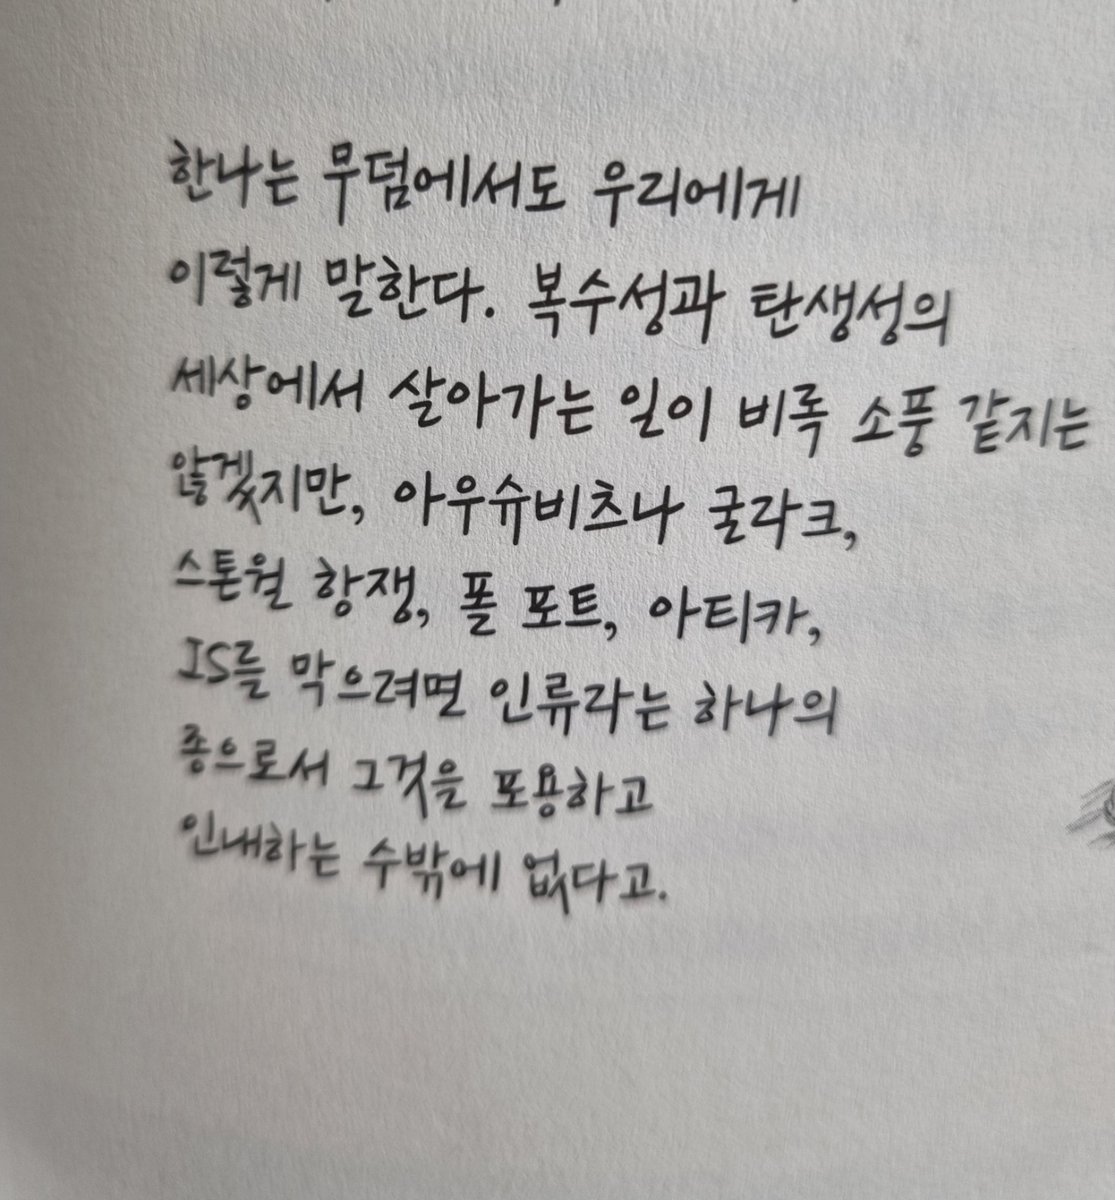 한나는 무덤에서도 우리에게
이렇게 말한다. 복수성과 탄생성의
세상에서 살아가는 일이 비록 소풍 같지는
않겠지만, 아우슈비츠나 굴라크,
스톤월 항쟁, 폴 포트, 아티카,
IS를 막으려면 인류라는 하나의
종으로서 그것을 포용하고
인내하는 수밖에 없다고.